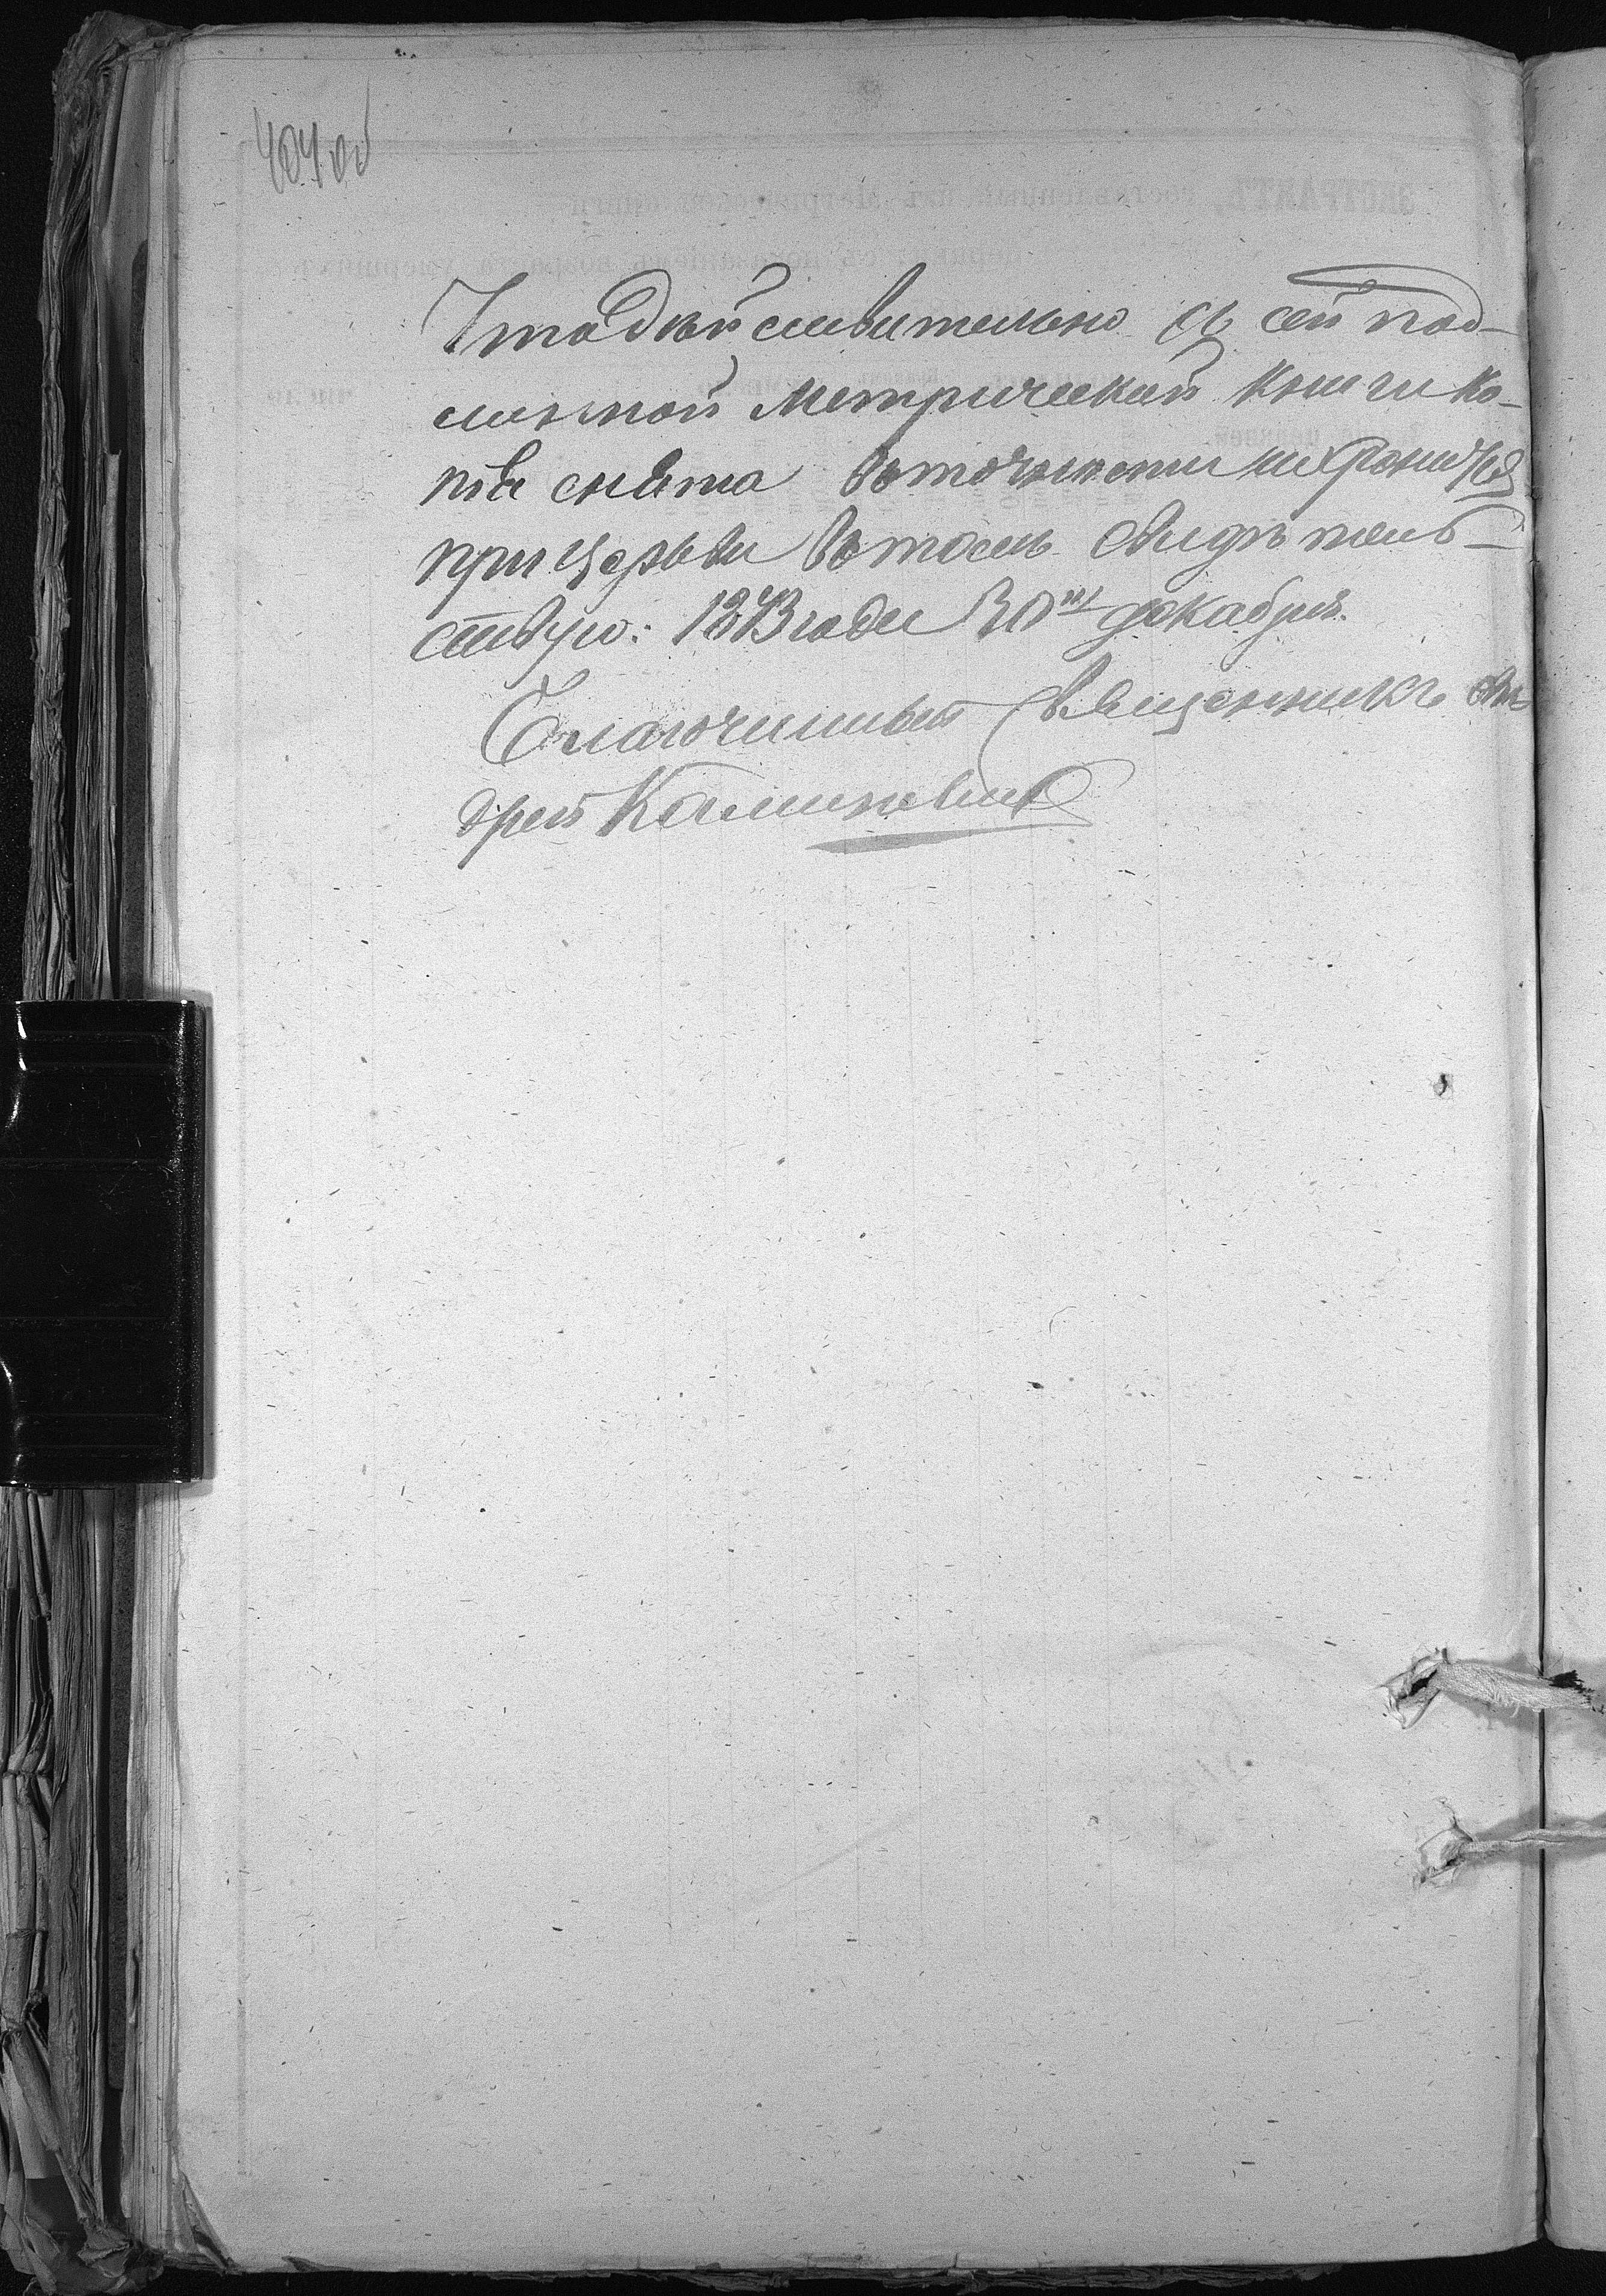 404об
Что дѣйствительно съ сей под-
линной Метрической книги ко-
пія снята въ точности и хранится
при Церкви въ томъ свидѣтель-
ствую: 1873 года 30го декабря.
Благочинный Священникъ Ан-
дрей